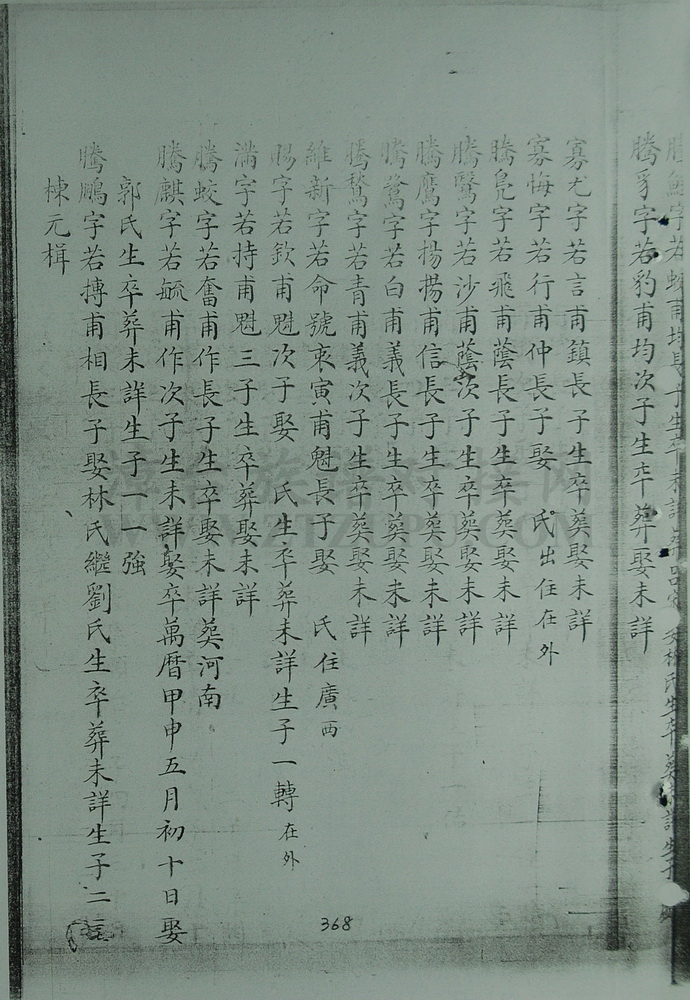 騰豸字若豹甫均次子生卒葬娶未詳
寡尤字若言甫鎮長子生卒葬娶未詳
寡悔字若行甫仲長子娶 氏出住在外
騰鳧字若飛甫蔭長子生卒葬娶未詳
騰鷖字若沙甫蔭次子生卒葬娶未詳
騰鷹字揚揚甫信長子生卒葬娶未詳
騰鷺字若白甫義長子生卒葬娶未詳
騰 字若青甫義次子生卒葬娶未詳
維新字若命號 寅甫魁長子娶 氏住廣西
賜字若欽甫魁次子娶 氏生卒葬未詳生子一轉在外
滿字若持甫魁三子生卒葬娶未詳
騰蛟字若奮甫作長子生卒娶未詳葬河南
騰麒字若毓甫作次子生未詳娶卒萬曆甲申五月初十日娶
郭氏生卒葬未詳生子一一強
騰鵬字若摶甫相長子娶林氏繼劉氏生卒葬未詳生子二
棟元楫
368